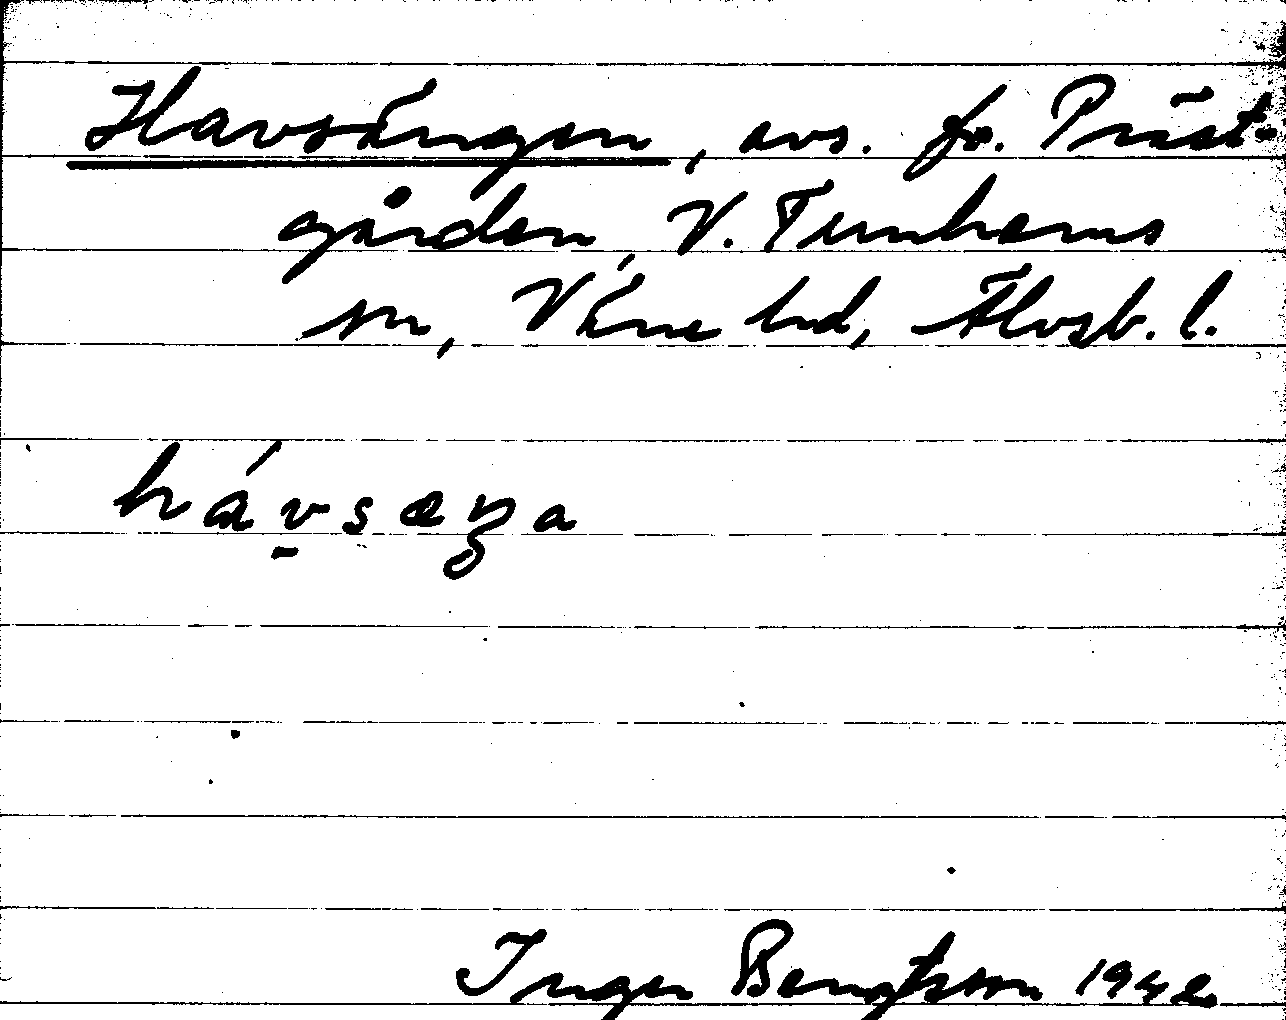 Havsängen, avs. fr. Präst-
gården, V. Tunhems
sn, Väne hd, Älvsb. l.
hávsæŋa
Inger Bengtsson 1942